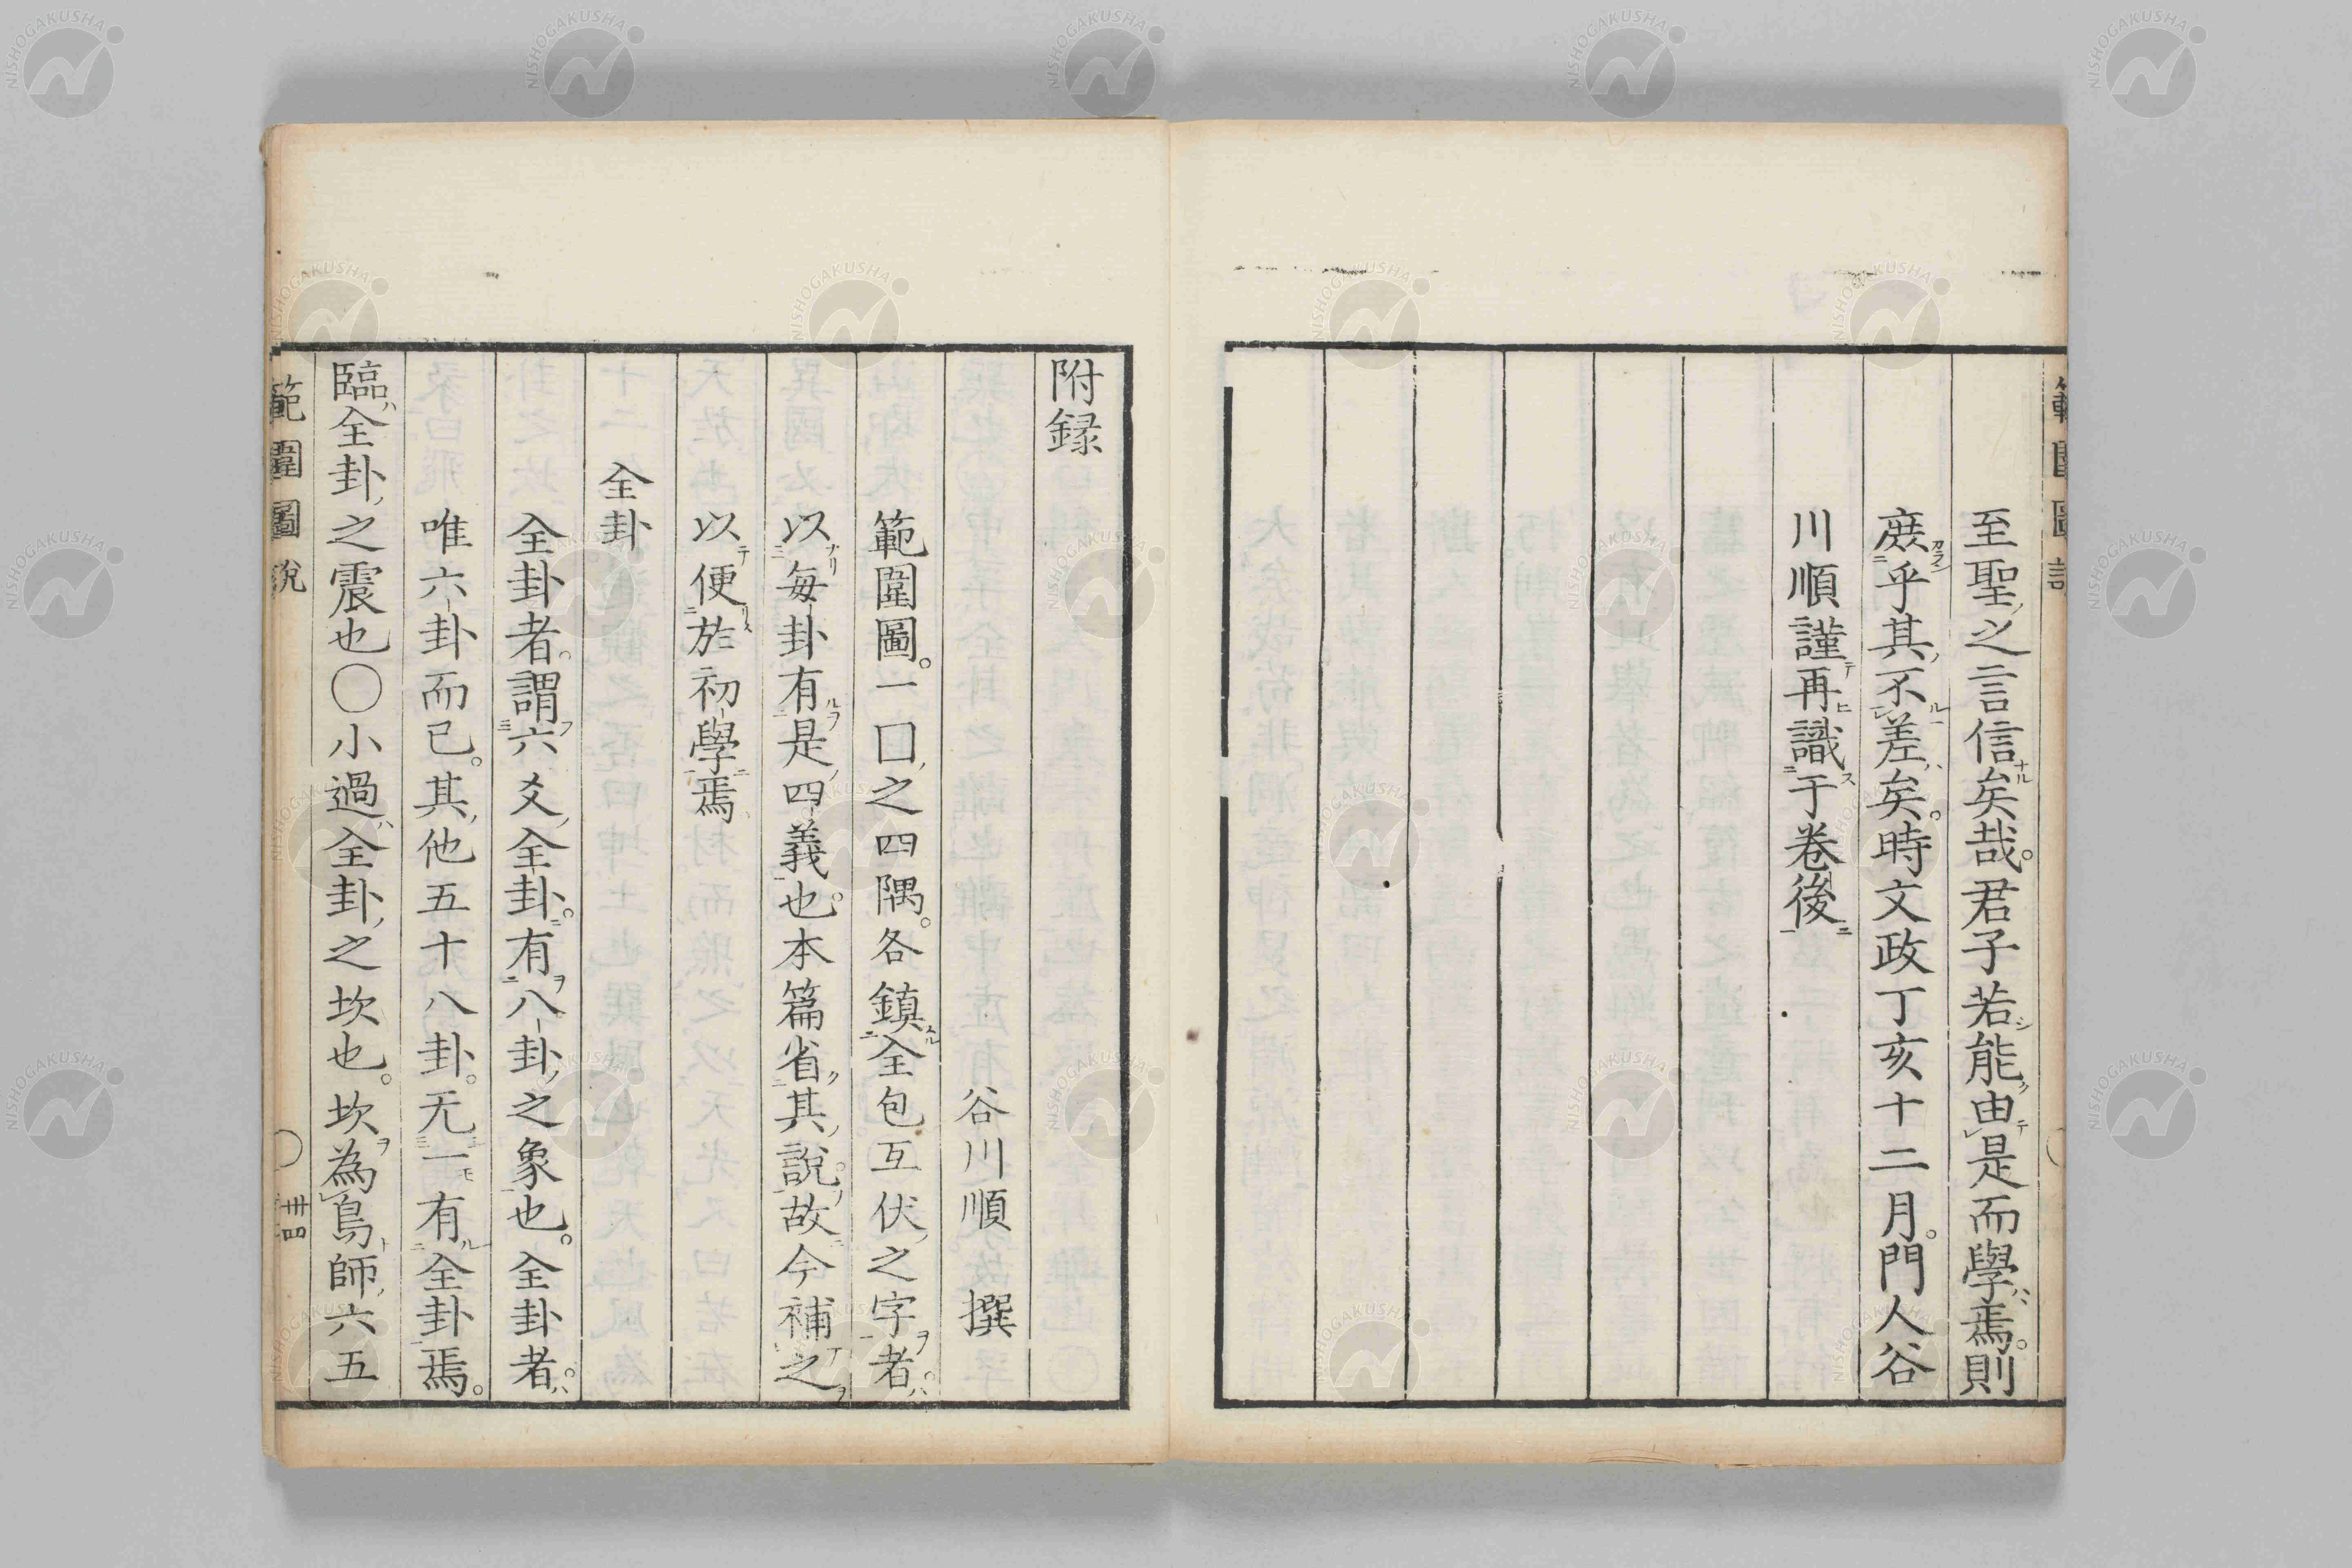 至聖之言信矣哉。君子若能由是而學焉。則
庶乎其不差矣。時文政丁亥十二月。門人谷
川順謹再識于卷後
附録
谷川順 撰
範圍圖。一囗之四隅。各鎮全包互伏之字者。
以每卦有是四義也。本篇省其說。故今補之
以便於初學焉
全卦
全卦者。謂六爻全卦。有八卦之象也。全卦者。
唯六卦而已。其他五十八卦。无一有全卦焉。
臨全卦之震也○小過全卦之坎也。坎為鳥師六五
範圍圖說 ○ 卅四
NISHOGAKUSHA